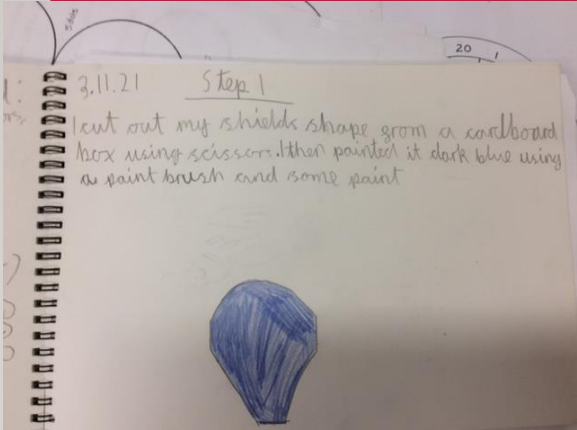 3.11.21 Step 1
I cut out my shields shape grom a cardboard
box using scissors. I then painted it dark blue using
a paint brush and some paint
20